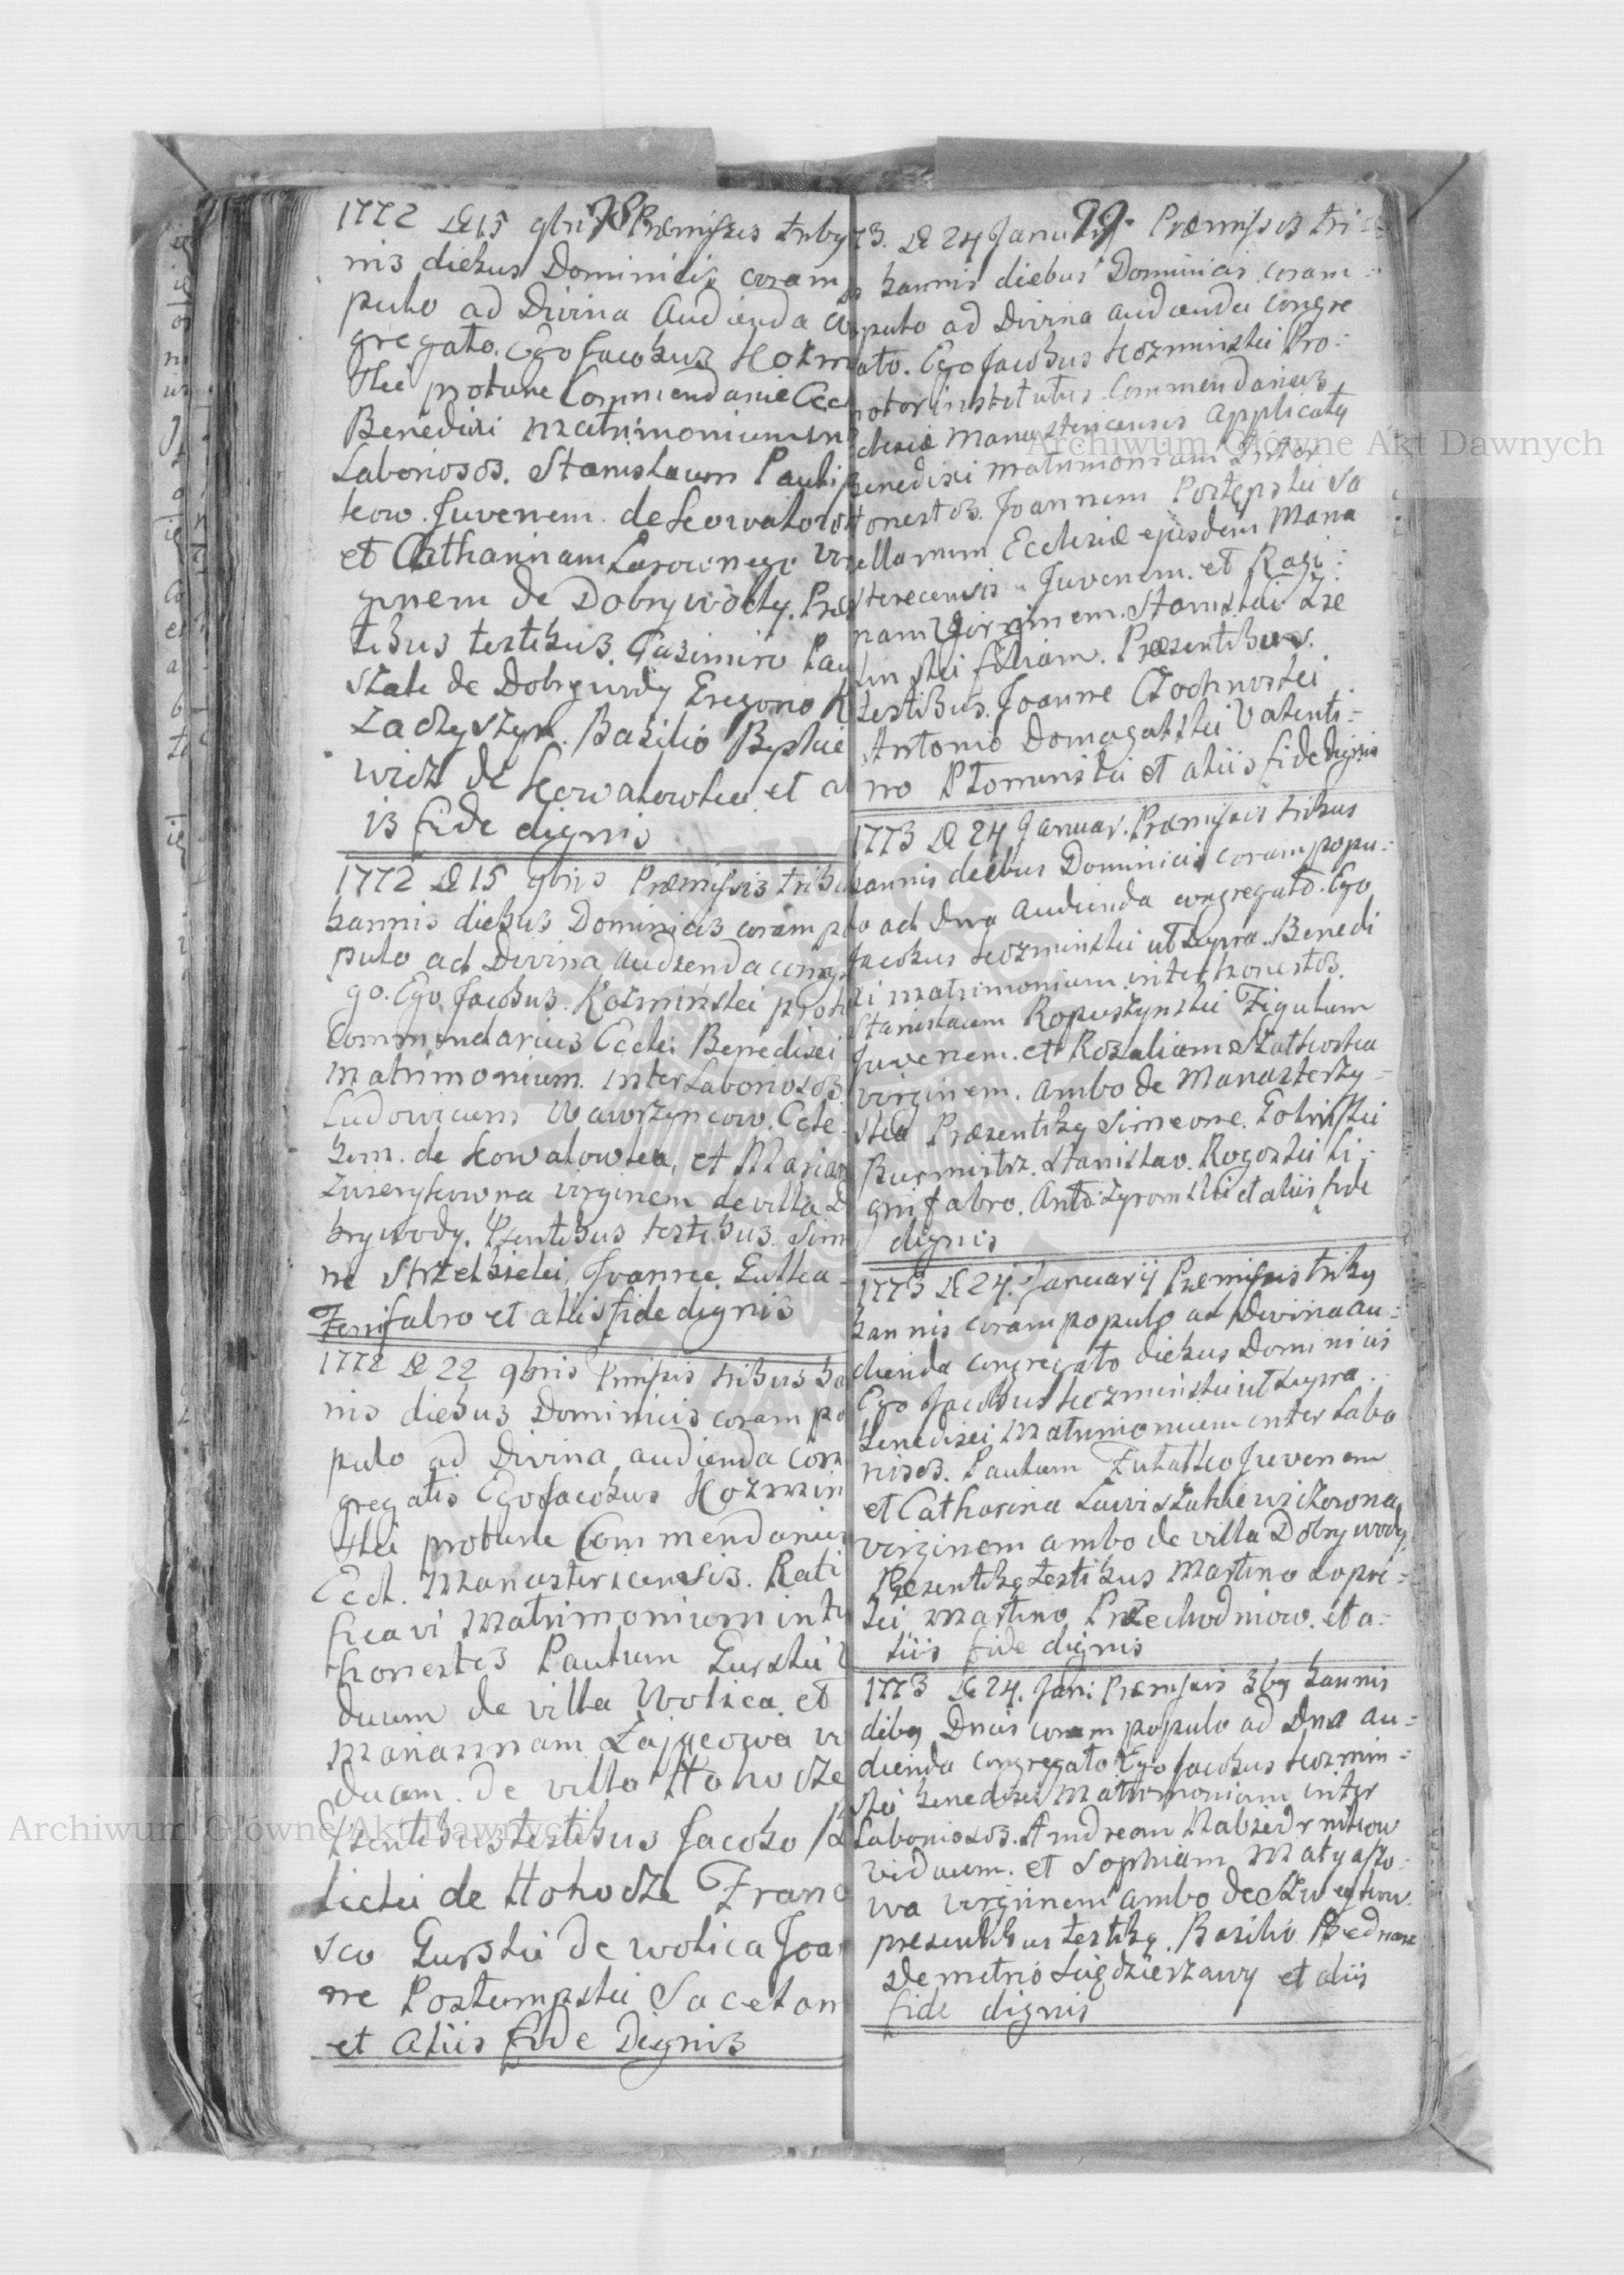 78
1772 D 15 9bri Præmissis triby
nis diebus Dominicis coram
pulo ad Divina Audienda
gregato. Ego Jacobus Kozm
skii protunc Commendarie Eccl
Benedixi matrimonium in
Laboriosos. Stanislaum Pauli
kow. Juvenem de Kowalow
et Catharinam
ginem de Dobrywody. Præ
tibus testibus. Casimiro Pau
de Dobrywody
Basilio
wicz de Kowalowka et a
is fide dignis
1772 D 15 9bris Præmissis tribu
bannis diebus Dominicis coram p
pulo ad Divina Audienda cong
go. Ego Jacobus Kozminskii prot
Commendarius Eccle: Benedixi
matrimonium inter Laboriosos
Ludovicum Wawrzyncow. Cele
bem. de Kowalowka, et Marian
virginem de villa D
brywody. Psentibus testibus. Sim
ne Strzelbicki, Joanne Gutka
Ferrifabro et aliis fide dignis
1772 D 22 9bris Pmssis tribus ba
nis diebus Dominicis coram po
pulo ad Divina audienda con
gregatis Ego Jacobus Kozmin
skii protunc Commendarius
Eccl. Manastericensis. Rati
ficavi Matrimonium inte
honestos Paulum Gurskii V
duum de villa Wolica et
Mariannam Zającowa vi
duam. de villa Hohodze
Psentibus testibus Jacobo
lickii de Hohodze Franc
sco Gurskii de Wolica Joan
ne Postempskii Sacelan
et Aliis fide Dignis
99.
73. D 24 Januarii Præmissis tri-
bannis diebus Dominicis coram
pulo ad Divina audienda congre
ato. Ego Jacobus Kozminskii Pro-
motor institutus Commendarius
clesiæ Manasticensis Applicaty
Benedixi matrimonium inter
Honestos. Joannem Postępskii Sa
cellanum Ecclesiæ ejusdem Mana
sterecensis Juvenem. et Regi-
nam Virginem. Stanislai
skii filiam. Præsentibus
testibus. Joanne
Antonio Domagalskii Valenti-
no Płominskii et aliis fide dignis
1773 D 24 Januar. Præmissis tribus
bannis diebus Dominicis coram popu-
lo ad Dna Audienda congregato. Ego
Jacobus Kozminskii ut supra. Benedi
xi matrimonium inter honestos.
Stanislaum Ropustynskii Figulum
Juvenem. et Rozaliam
virginem. ambo de Manasterzy-
ska Præsentiby Simeone. Golinskii
Burmistrz. Stanislao. Rogoskii li-
gnifabro. Anto: Zyromskii et aliis fide
dignis
1773 D 24. Januarij Præmissis triby
bannis coram populo ad Divina au-
dienda congregato diebus Dominicis
Ego Jacobus Kozminskii ut supra.
Benedixi Matrimonium inter Labo
riosos. Paulum Juvenem
et Catharina
virginem ambo de villa Dobrywody
Præsentiby testibus Martino
Martino Przechodniow. et a-
liis fide dignis
1773 D 24. Jani Præmissis 3by bannis
diby Dncis coram populo ad Dna au-
dienda congregato Ego Jacobus Kozmin-
skii benedixi Matrimonium inter
Laboriosos. Andream
viduum. et Sophiam Matyaszo-
wa virginem ambo de
presentibus testiby. Basilio Bednarz
Demetrio et aliis
fide dignis
Archiwum Główne Akt Dawnych
Archiwum Główne Akt Dawnych